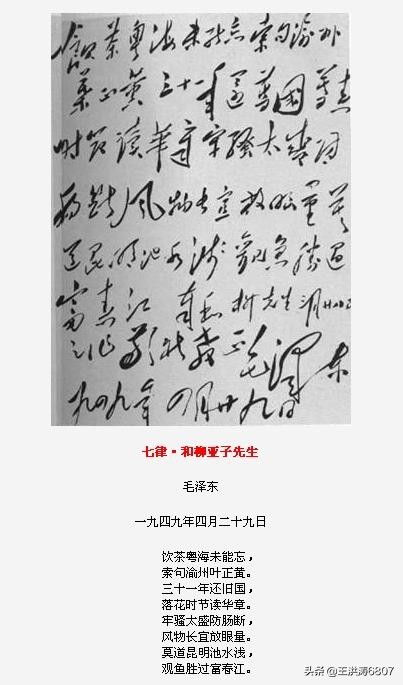 飲茶粵海未能忘索句渝州
葉正黃三十一年還舊國落花
時節讀華章牢騷太盛防
腸斷風物長宜放眼量莫
道昆明池水淺觀魚勝過
富春江 奉和柳先生三月廿八日
之作敬祈教正毛澤東
一九四九年四月廿九日
七律·和柳亚子先生
毛泽东
一九四九年四月二十九日
饮茶粤海未能忘，
索句渝州叶正黄。
三十一年还旧国，
落花时节读华章。
牢骚太盛防肠断，
风物长宜放眼量。
莫道昆明池水浅，
观鱼胜过富春江。
头条 @王洪涛6807